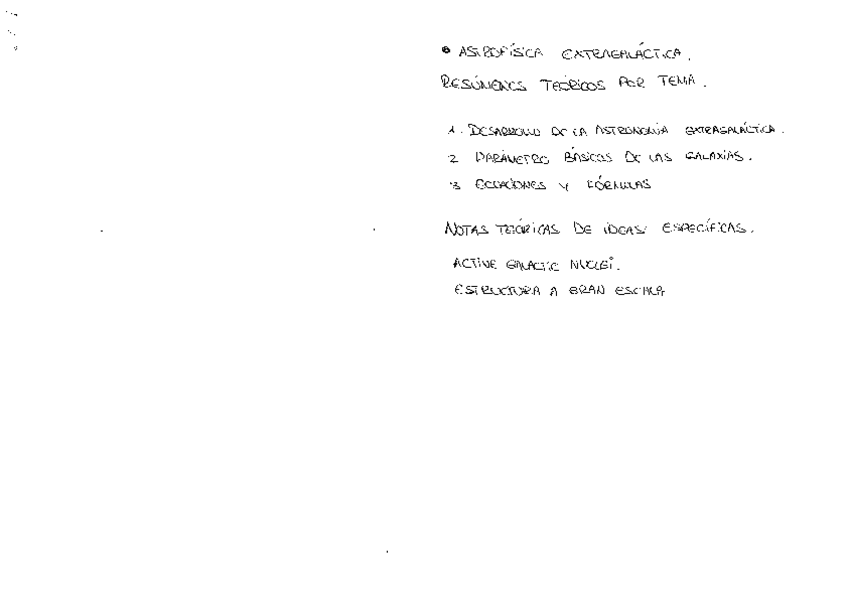 • ASTROFÍSICA EXTRAGALÁCTICA.
RESÚMENES TEÓRICOS POR TEMA.
1. DESARROLLO DE LA ASTRONOMÍA EXTRAGALÁCTICA.
2 PARÁMETRO BÁSICOS DE LAS GALAXIAS.
3 ECUACIONES Y FÓRMULAS
NOTAS TEÓRICAS DE IDEAS ESPECÍFICAS.
ACTIVE GALACTIC NUCLEI.
ESTRUCTURA A GRAN ESCALA